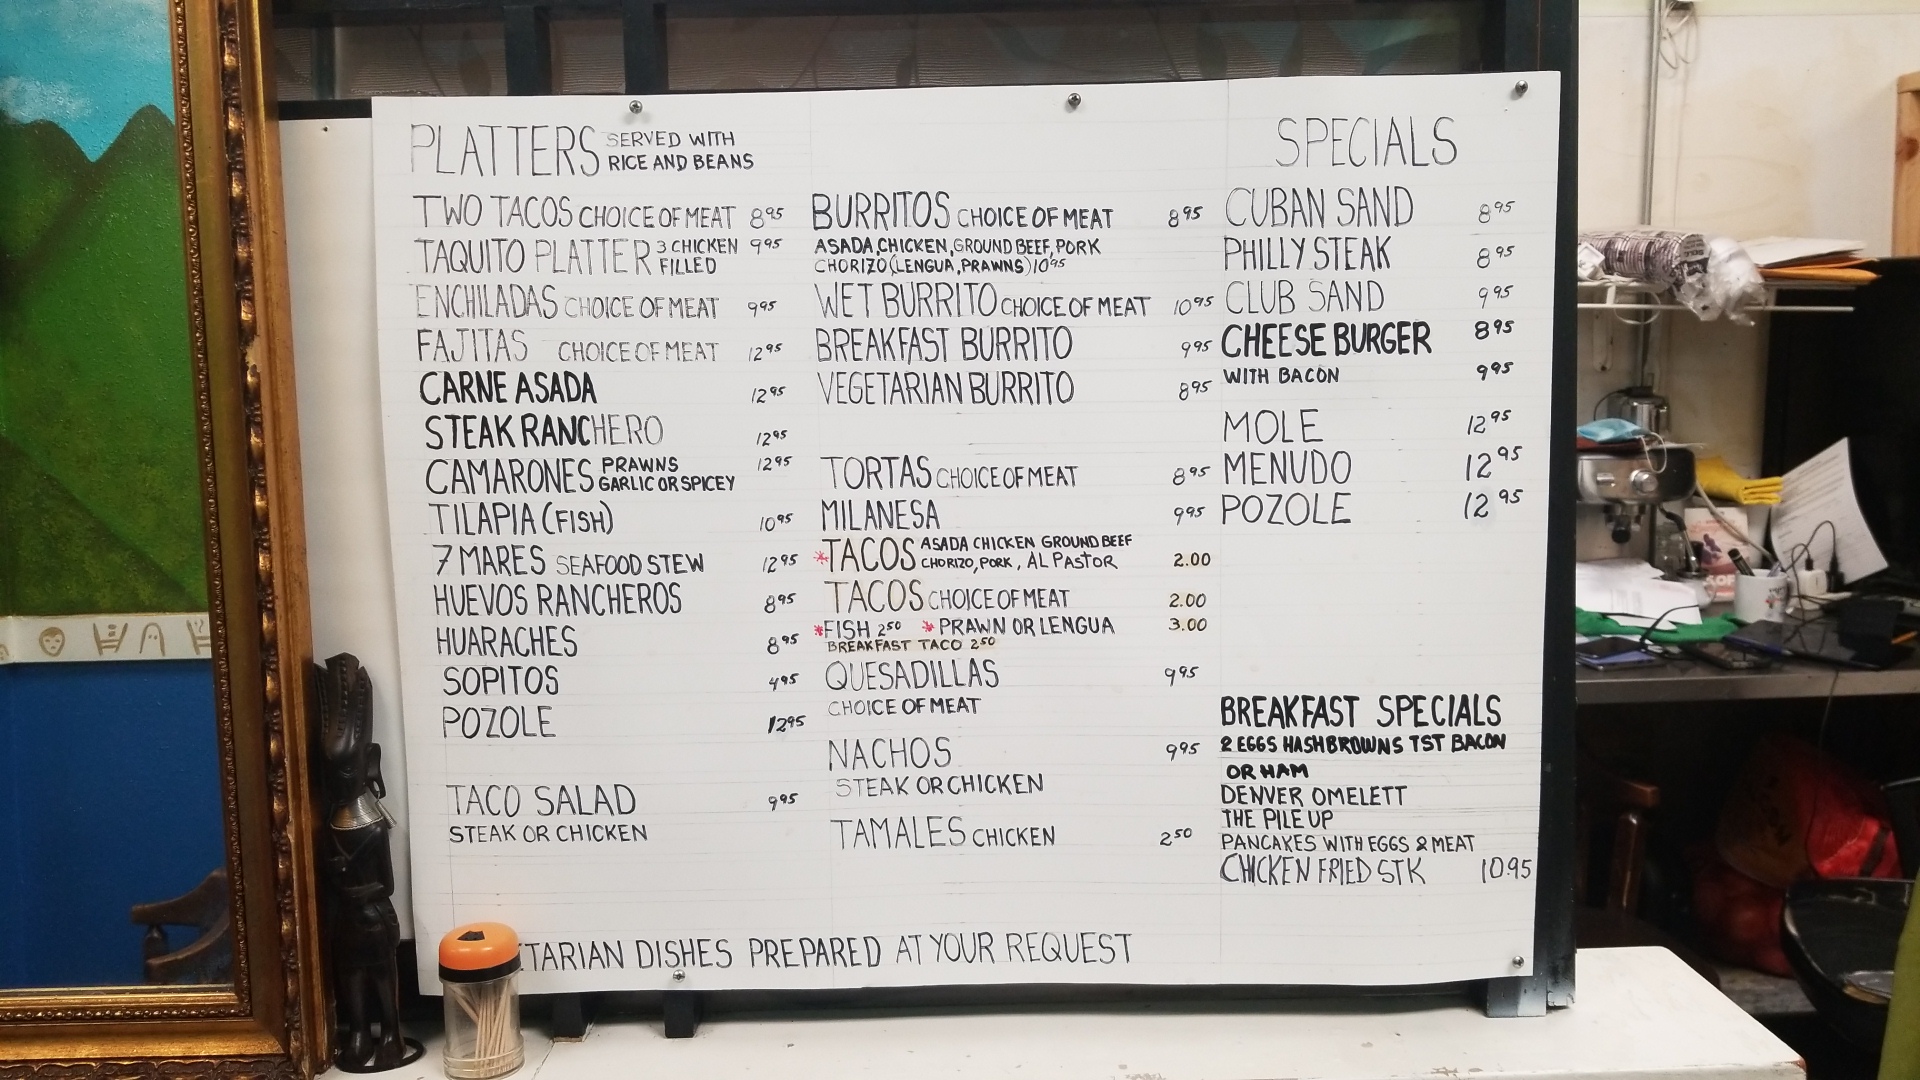 PLATTERS SERVED WITH
RICE AND BEANS
TWO TACOS CHOICE OF MEAT 8 95
TAQUITO PLATTER 3 CHICKEN 9 95
FILLED
ENCHILADAS CHOICE OF MEAT 9 95
FAJITAS CHOICE OF MEAT 12 95
CARNE ASADA 12 95
STEAK RANCHERO 12 95
CAMARONES PRAWNS 12 95
GARLIC OR SPICEY
TILAPIA (FISH) 10 95
7 MARES SEAFOOD STEW 12 95
HUEVOS RANCHEROS 8 95
HUARACHES 8 95
SOPITOS 4 95
POZOLE 12 95
TACO SALAD 9 95
STEAK OR CHICKEN
BURRITOS CHOICE OF MEAT 8 95
ASADA, CHICKEN, GROUND BEEF, PORK
CHORIZO (LENGUA, PRAWNS) 10 95
WET BURRITO CHOICE OF MEAT 10 95
BREAKFAST BURRITO 9 95
VEGETARIAN BURRITO 8 95
TORTAS CHOICE OF MEAT 8 95
MILANESA 9 95
*TACOS ASADA CHICKEN GROUND BEEF
CHORIZO, PORK, AL PASTOR 2.00
TACOS CHOICE OF MEAT 2.00
*FISH 2 50 *PRAWN OR LENGUA 3.00
BREAKFAST TACO 2 50
QUESADILLAS 9 95
CHOICE OF MEAT
NACHOS 9 95
STEAK OR CHICKEN
TAMALES CHICKEN 2 50
SPECIALS
CUBAN SAND 8 95
PHILLY STEAK 8 95
CLUB SAND 9 95
CHEESE BURGER 8 95
WITH BACON 9 95
MOLE 12 95
MENUDO 12 95
POZOLE 12 95
BREAKFAST SPECIALS
2 EGGS HASHBROWNS TST BACON
OR HAM
DENVER OMELETT
THE PILE UP
PANCAKES WITH EGGS & MEAT
CHICKEN FRIED STK 10.95
ETARIAN DISHES PREPARED AT YOUR REQUEST